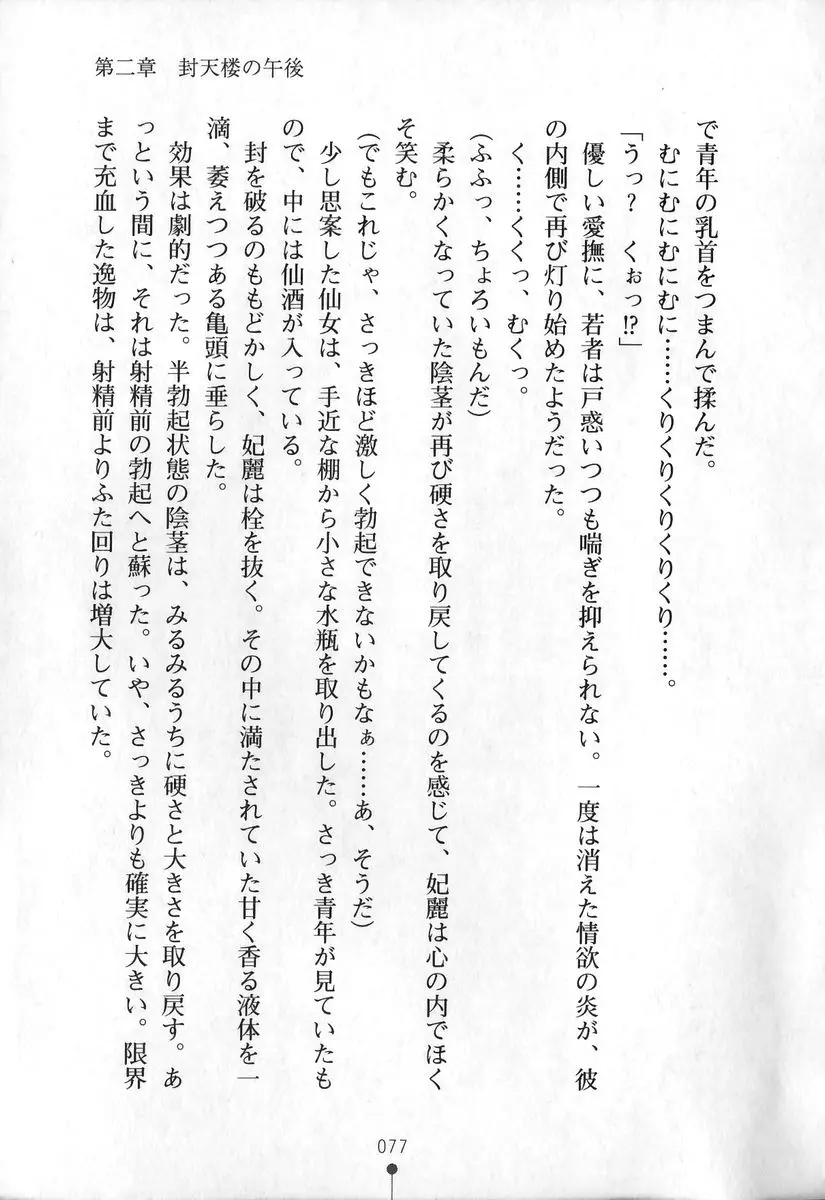 第二章　封天楼の午後
で青年の乳首をつまんで揉んだ。
むにむにむにむに……くりくりくりくりくり……。
「うっ？　くぉっ!?」
優しい愛撫に、若者は戸惑いつつも喘ぎを抑えられない。一度は消えた情欲の炎が、彼
の内側で再び灯り始めたようだった。
く……くくっ、むくっ。
(ふふっ、ちょろいもんだ)
柔らかくなっていた陰茎が再び硬さを取り戻してくるのを感じて、妃麗は心の内でほく
そ笑む。
(でもこれじゃ、さっきほど激しく勃起できないかもなぁ……あ、そうだ)
少し思案した仙女は、手近な棚から小さな水瓶を取り出した。さっき青年が見ていたも
ので、中には仙酒が入っている。
封を破るのももどかしく、妃麗は栓を抜く。その中に満たされていた甘く香る液体を一
滴、萎えつつある亀頭に垂らした。
効果は劇的だった。半勃起状態の陰茎は、みるみるうちに硬さと大きさを取り戻す。あ
っという間に、それは射精前の勃起へと蘇った。いや、さっきよりも確実に大きい。限界
まで充血した逸物は、射精前よりふた回りは増大していた。
077